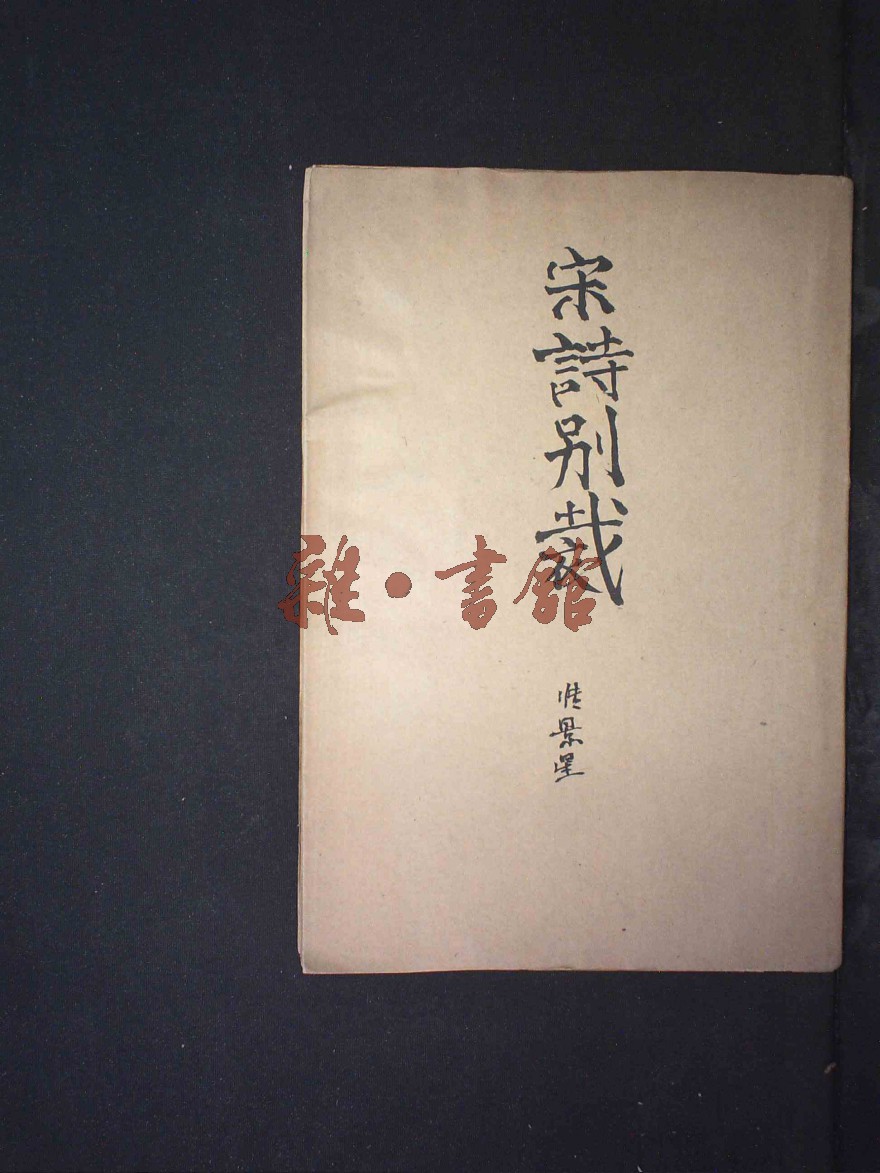 宋詩別裁
張景星
雜·書館